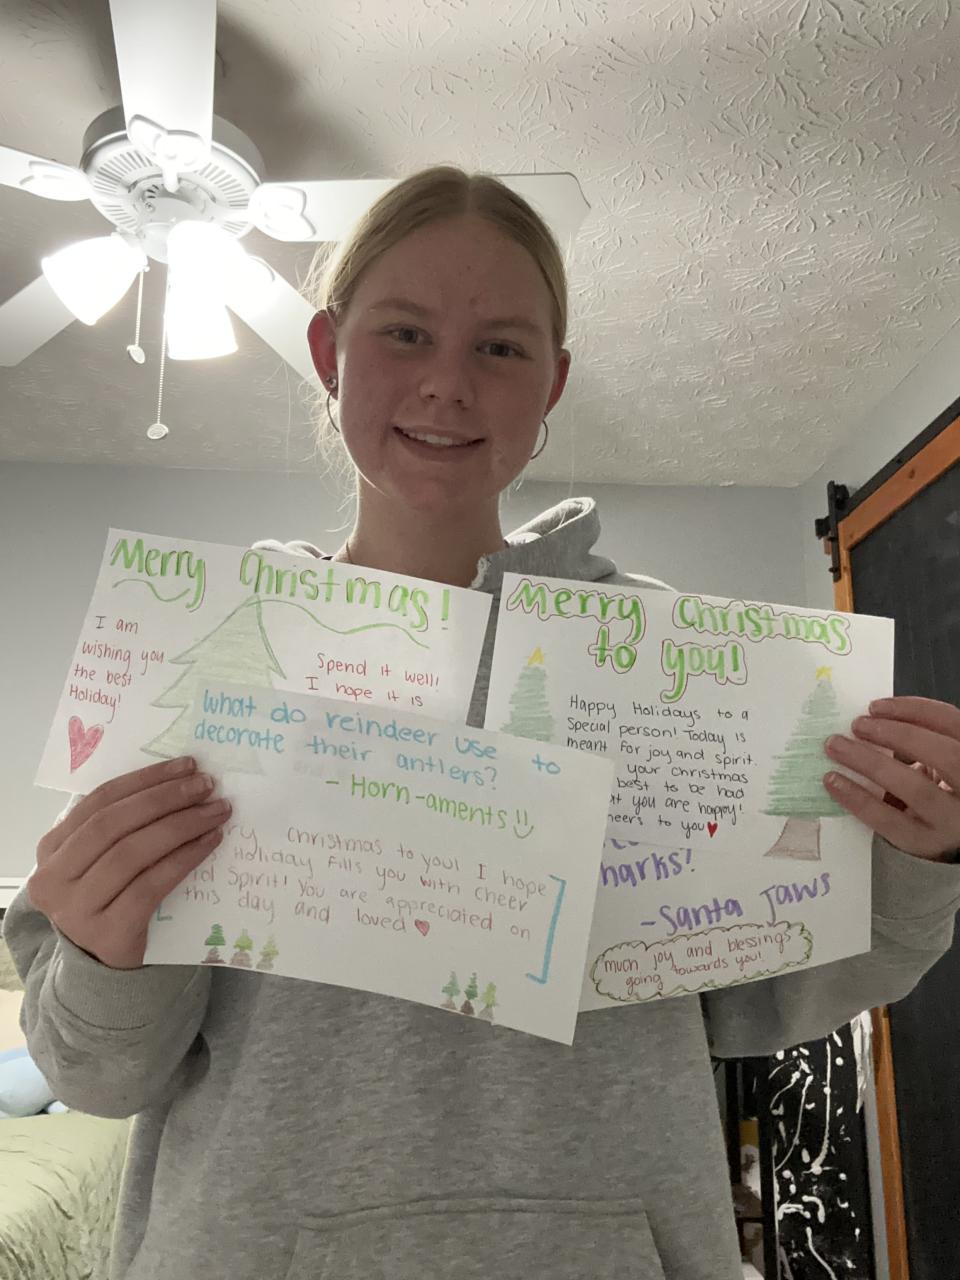 Merry Christmas!
I am
wishing you
the best
Holiday!
Spend it well!
I hope it is
Merry Christmas
to you!
Happy Holidays to a
Special person! Today is
meant for joy and spirit.
your Christmas
best to be had
you are happy!
to you
What do reindeer use to
decorate their antlers?
- Horn-aments!!
Christmas to you! I hope
Holiday fills you with cheer
Spirit! You are appreciated on
this day and loved
-Santa Jaws
much joy and blessings
going towards you!